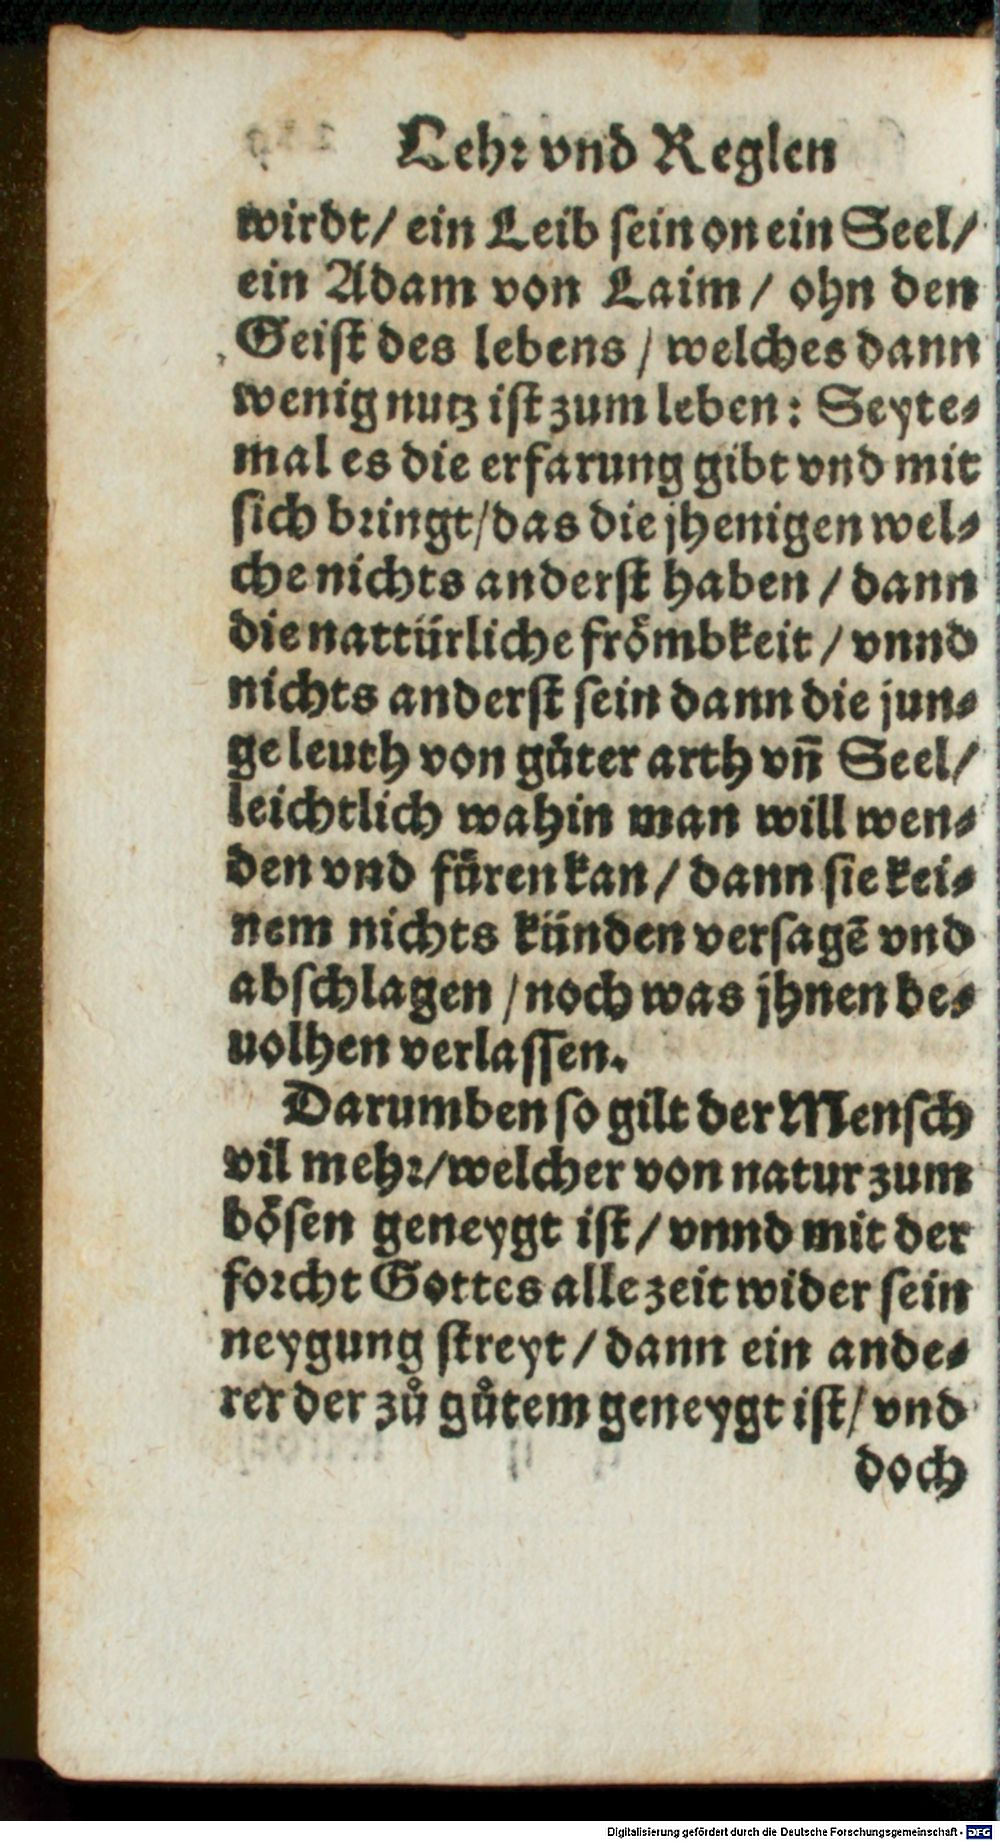 Lehr vnd Reglen
wirdt/ ein Leib sein on ein Seel/
ein Adam von Laim / ohn den
Geist des lebens / welches dann
wenig nutz ist zum leben: Seyte-
mal es die erfarung gibt vnd mit
sich bringt/das die jhenigen wel-
che nichts anderst haben / dann
die nattürliche frömbkeit / vnnd
nichts anderst sein dann die jun-
ge leuth von gůter arth vn̄ Seel/
leichtlich wahin man will wen-
den vnd fůren kan / dann sie kei-
nem nichts künden versagē vnd
abschlagen / noch was jhnen be-
uolhen verlassen.
Darumben so gilt der Mensch
vil mehr/welcher von natur zum
bösen geneygt ist / vnnd mit der
forcht Gottes alle zeit wider sein
neygung streyt / dann ein ande-
rer der zů gůtem geneygt ist/ vnd
doch
Digitalisierung gefördert durch die Deutsche Forschungsgemeinschaft - DFG